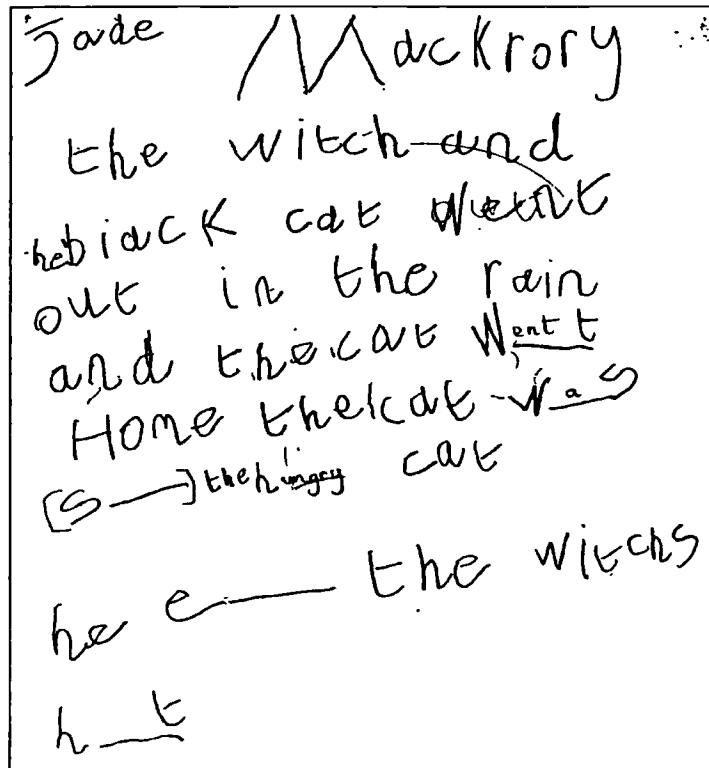 Jade Mackrory
the witch and
her black cat went
out in the rain
and the cat went t
Home the cat was
[s——] the hungry cat
he e—— the witchs
h__t